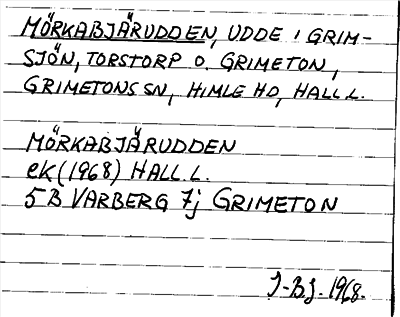 MÖRKABJÄRUDDEN, UDDE I GRIM-
SJÖN, TORSTORP O. GRIMETON,
GRIMETONS SN, HIMLE HD, HALL L.
MÖRKABJÄRUDDEN
eK (1968) HALL. L.
5 B VARBERG 7j GRIMETON
J-BJ. 1968.